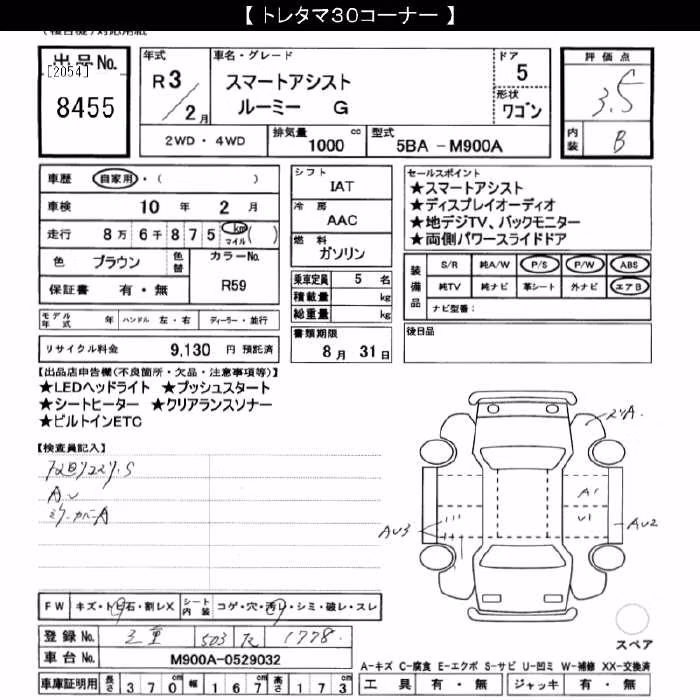 【 トレタマ30コーナー 】
出品No.
[2054]
8455
年式
R3/2月
車名・グレード
スマートアシスト
ルーミー G
ドア
5
形状
ワゴン
評価点
3.5
内装
B
2WD・4WD
排気量 1000 cc
型式 5BA -M900A
車歴 自家用・( )
車検 10 年 2 月
走行 8万 6千 8 7 5 km マイル ( )
色 ブラウン
色替
カラーNo.
R59
保証書 有・無
モデル年式 年
ハンドル 左・右
ディーラー・並行
リサイクル料金 9,130 円 預託済
シフト
IAT
冷房
AAC
燃料
ガソリン
乗車定員 5 名
積載量 kg
総重量 kg
書類期限
8月 31日
セールスポイント
★スマートアシスト
★ディスプレイオーディオ
★地デジTV、バックモニター
★両側パワースライドドア
装備品
S/R 純A/W P/S P/W ABS
純TV 純ナビ 革シート 外ナビ エアB
ナビ型番:
後日品
【出品店申告欄(不良箇所・欠品・注意事項等)】
★LEDヘッドライト ★プッシュスタート
★シートヒーター ★クリアランスソナー
★ビルトインETC
【検査員記入】
ミラーカバーA
A1
U1
AU3
AU2
FW キズ・トビ石・割レX
シート内装 コゲ・穴・汚レ・シミ・破レ・スレ
登録No. 三重 503 1778
車台No. M900A-0529032
車庫証明用 長さ 370cm 幅 167cm 高さ 173cm
スペア
A-キズ C-腐食 E-エクボ S-サビ U-凹ミ W-補修 XX-交換済
工具 有・無 ジャッキ 有・無